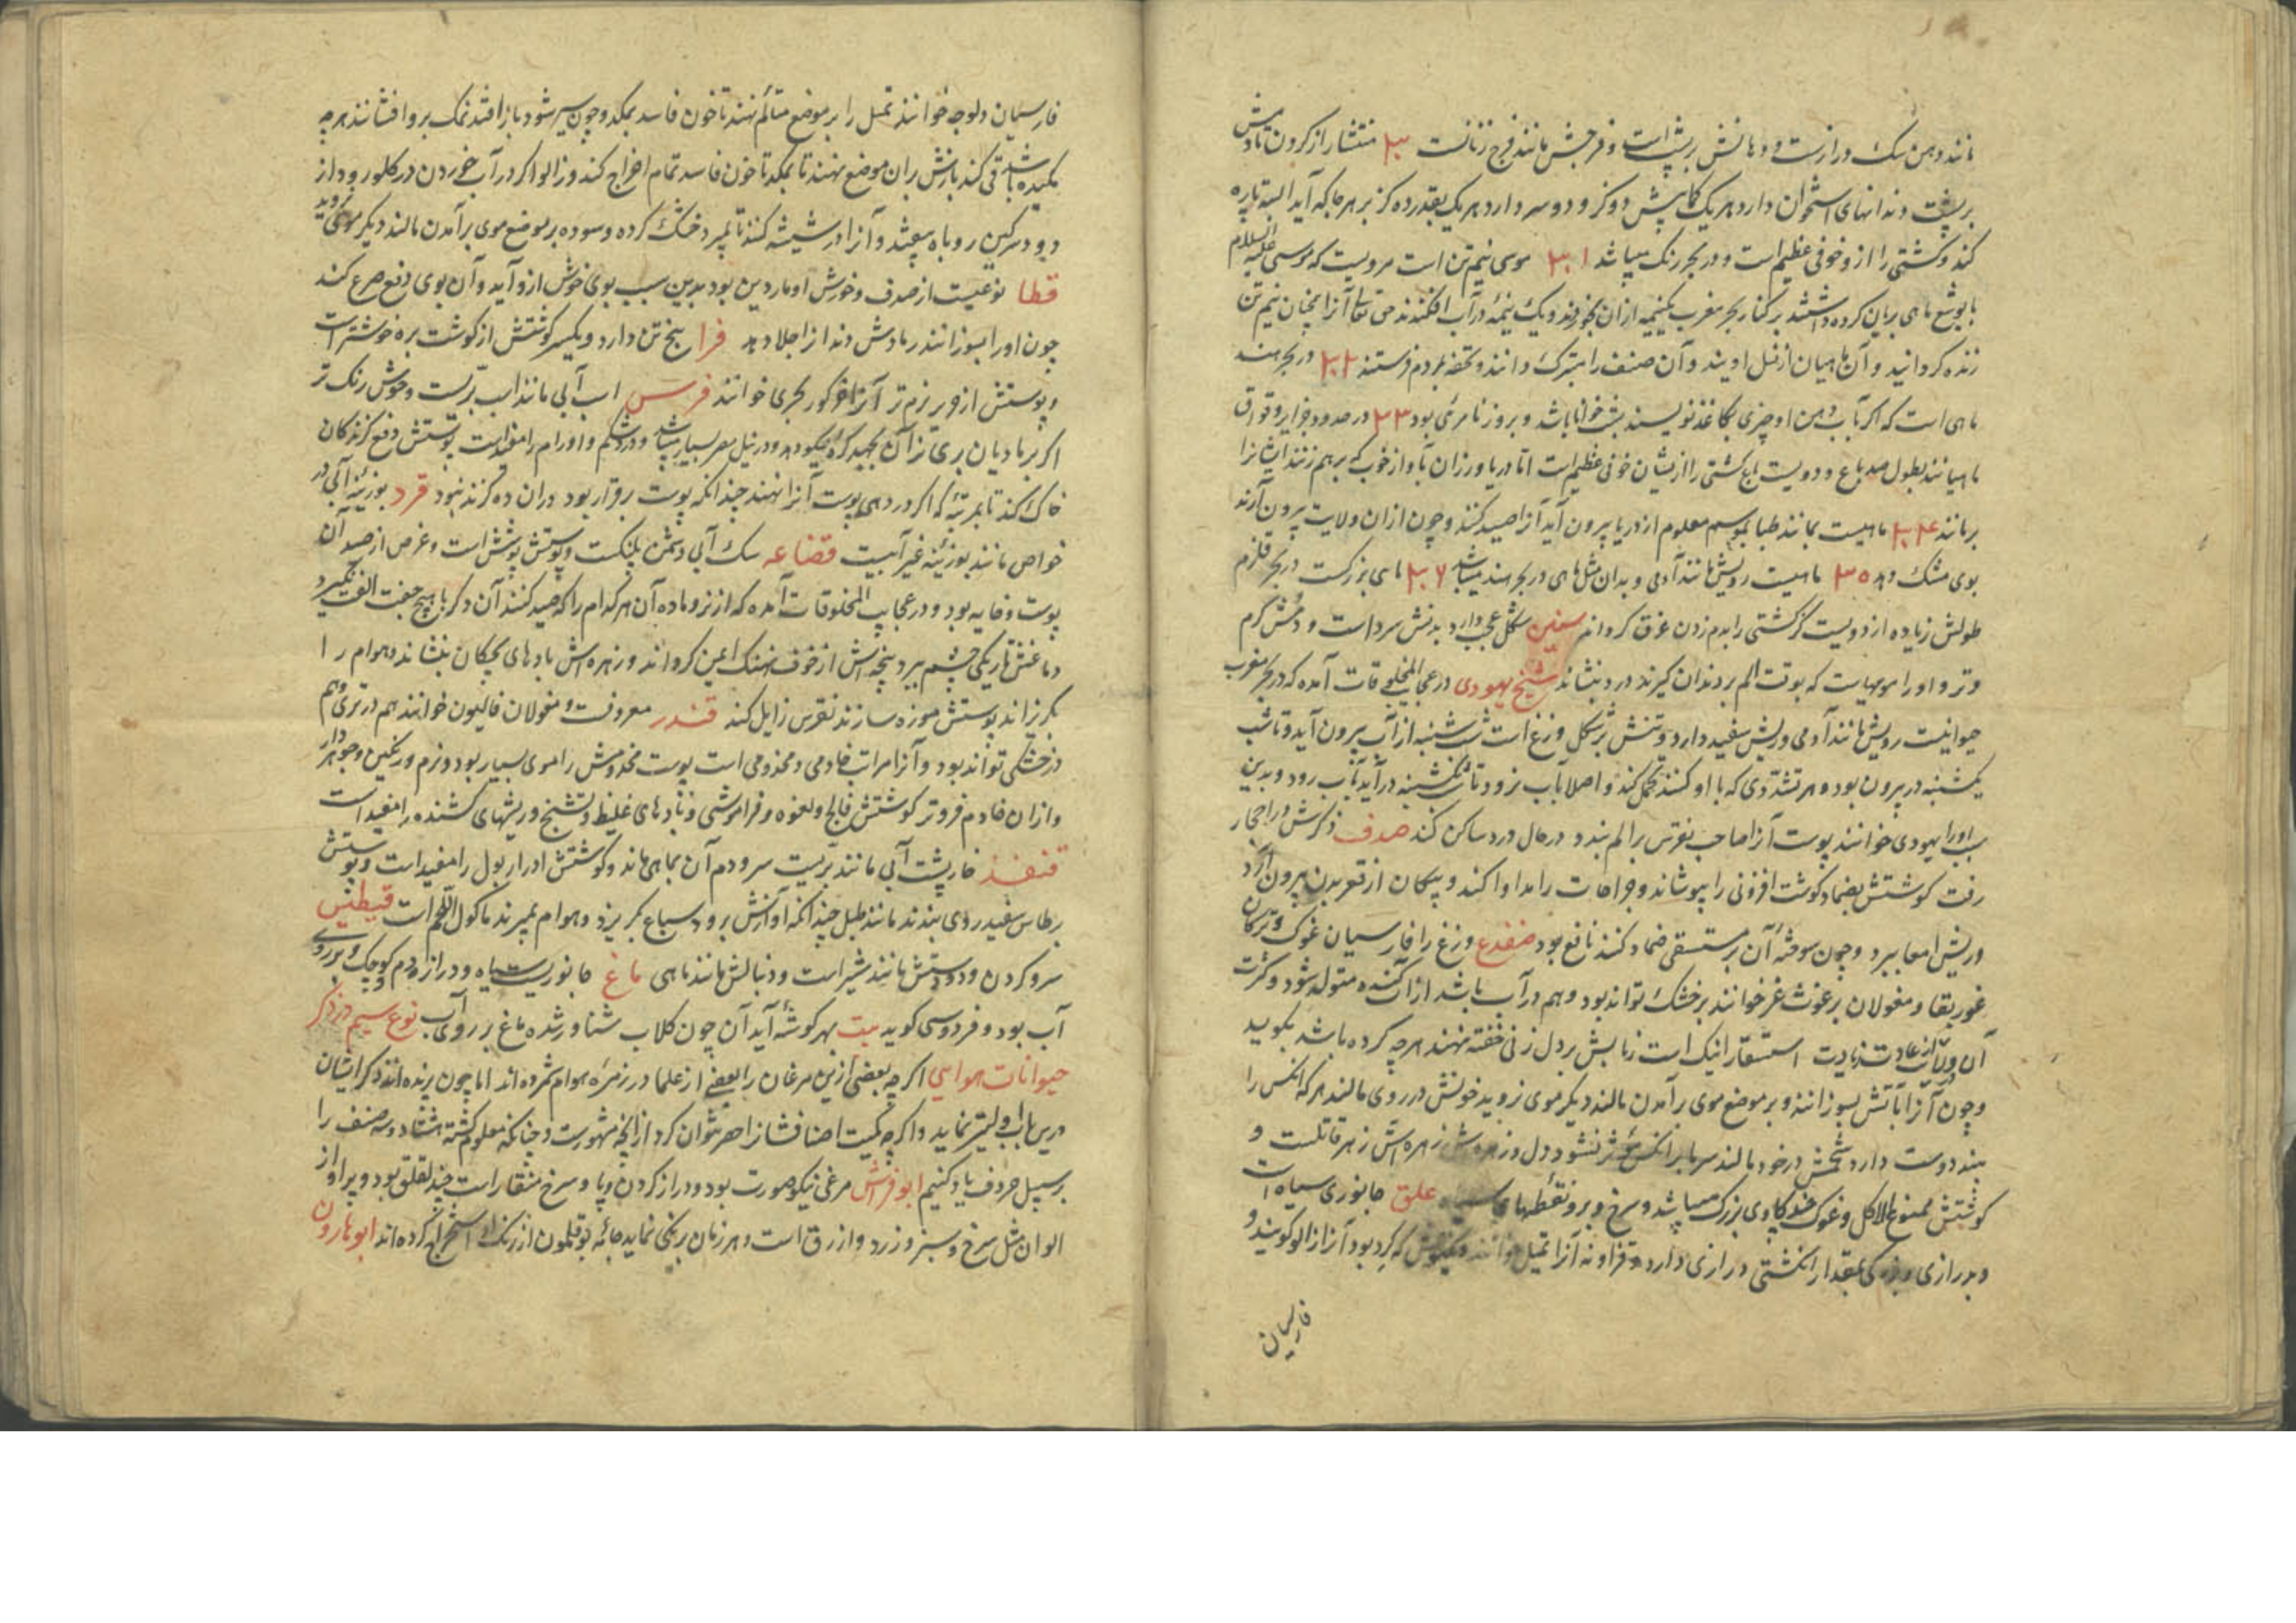 مانند دهن سگ درازست و دهانش بر پشت است و فرجش مانند فرج زنانست ۳۰ منشار از گردن تا دمش
بر پشت دندانهای استخوان دارد هر یک کمابیش دو گز و دو سر دارد هر یک بقدر ده گز بر هر جا که آید البته پاره
کند و کشتی را ازو خوفی عظیم است و در بحر زنگ میباشد ۳۱ موسی نیم تن است مرویست که موسی علیه السلام
با یوشع ماهی بریان کرده داشتند بر کنار بحر مغرب یک نیمه ازان بخوردند و یک نیمه در آب افکندند حق تعالی آنرا همچنان نیم تن
زنده گردانید و آن ماهیان از نسل اویند و آن صنف را متبرک دانند و تحفه بمردم فرستند ۳۲ در بحر هند
ماهی است که اگر بآب دهن او چیزی بکاغذ نویسند بشب خوانا باشد و بروز نامرئی بود ۳۳ در حدود جزایر وقواق
ماهیانند بطول صد باع و دویست باع کشتی را ازیشان خوفی عظیم است اما دریاورزان بآواز چوب که بر هم زنند ایشانرا
برمانند ۳۴ ماهیست بمانند ظبا بموسم معلوم از دریا بیرون آید آنرا صید کنند و چون ازان ولایت بیرون آرند
بوی مشک دهد ۳۵ ماهیست رویش مانند آدمی و بدان مثل ماهی در بحر هند میباشد ۳۶ ماهی بزرگست در بحر قلزم
طولش زیاده از دویست گز کشتی را بدم زدن غرق گرداند سفنن شکل عجب دارد بدنش سرد است و دمش گرم
و تر و او را مومیاست که بوقت الم بر دندان گیرند درد بنشاند شیخ یهودی در عجایب المخلوقات آمده که در بحر مغرب
حیوانیست رویش مانند آدمی و ریش سفید دارد و تنش بر شکل وزغ است شب شنبه از آب بیرون آید و تا شب
یکشنبه در بیرون بود و هر تشددی که با او کنند تحمل کند و اصلا بآب نرود تا شب یکشنبه درآید بآب رود و بدین
سبب او را یهودی خوانند پوست آنرا صاحب نقرس بر الم بندد در حال درد ساکن کند صدف ذکرش در احجار
رفت گوشتش بضماد گوشت افزونی را بپوشاند و جراحات را مداوا کند و پیکان از قعر بدن بیرون آرد
و ریش امعا ببرد و چون سوخته آن بر مستسقی ضماد کنند نافع بود ضفدع وزغ را فارسیان غوک و ترکان
غوربقا و مغولان برغوث غر خوانند بر خشک تواند بود و هم در آب باشد از آب گنده متولد شود و کثرت
آن وبا از عادت زیادت استسقا را نیک است زبانش بر دل زنی خفته نهند هرچه کرده باشد بگوید
و چون آنرا بآتش بسوزانند و بر موضع موی برآمدن مالند دیگر موی نروید خونش در روی مالند هر که آنکس را
بیند دوست دارد شحمش در خود مالند سرما بر آنکس مؤثر نشود دل و زهره‌اش زهر قاتلست و
گوشتش ممنوع الاکل و غوک چند گاوی بزرگ میباشد و سرخ و برو نقطهای سیاه علق جانوری سیاه است
و بدرازی و بزرگی بمقدار انگشتی درازی دارد آنرا تمیل دانند که گرد بود آنرا زالو گویند و
فارسیان
فارسیان دلوجه خوانند تمیل را بر موضع متألم نهند تا خون فاسد بمکد و چون سیر شود باز افتد نمک برو افشانند هرچه
مکیده باشد قی کند بازش بران موضع نهند تا بمکد تا خون فاسد تمام اخراج کند و زالو اگر در آب خوردن در گلو رود از
دود سرگین روباه بیفتد و آنرا در شیشه کنند تا بمیرد خشک کرده و سوده بر موضع موی برآمدن مالند دیگر موی نروید
قطا نوعیست از صدف و خورش او ماردین بود بدین سبب بوی خوش ازو آید و آن بوی دفع صرع کند
چون او را بسوزانند رمادش دندانرا جلا دهد فرا پنج تن دارد و یک سر گوشتش از گوشت بره خوشتر است
و پوستش از فربر نرم تر آنرا خرگور بحری خوانند فرس اسب آبی مانند اسب بریست و خوش رنگ تر
اگر بر مادیان بری نزان آن بجهد کره نیکو دهد و در نیل مصر بسیار میباشد و درد شکم و اورام را مفید است پوستش دفع گزندگان
خاک کند تا بمرتبه که اگر در دهی پوست آنرا نهند چندانکه پوست برقرار بود دران ده گزند نبود قرد بوزینه آبی در
خواص مانند بوزینه غیر آبیست قضاعه سگ آبی دشمن پلنگست و پوستش پوشش است و غرض از صید آن
پوست و خایه بود و در عجایب المخلوقات آمده که از نر و ماده آن هر کدام را که صید کنند آن دگر با هیچ جفت الفت نگیرد
دماغش تاریکی چشم ببرد پنجه‌اش از خوف نهنگ ایمن گرداند و زهره‌اش بادهای بچگان بنشاند و هوام را
بگریزاند پوستش موزه سازند نقرس زایل کند قندر معروفست و مغولان قالیون خوانند هم در تری و هم
در خشکی تواند بود و آنرا مراتب خادمی و مخدومی است پوست مخدومش را موی بسیار بود و نرم و رنگین و جوهردار
و ازان خادم فروتر گوشتش فالج و لقوه و فراموشی و بادهای غلیظ و تشنج و ریشهای کشنده را مفید است
قنفذ خارپشت آبی مانند بریست سر و دم آن بماهی ماند و گوشتش ادرار بول را مفید است و پوستش
بر طاس سفید روی بندند مانند طبل چندانکه آوازش برود سباع بگریزد و هوام بمیرند ماکول اللحم است قیطنس
سر و گردن و دو دستش مانند شیر است و دنبالش مانند ماهی ماغ جانوریست سیاه و دراز دم کوچک و بر روی
آب بود و فردوسی گوید بیت بهر گوشه آید آن چون کلاب شناور شده ماغ بر روی آب نوع سیم در ذکر
حیوانات هوایی اگرچه بعضی ازین مرغان را بعضی از علما در زمره هوام شمرده‌اند اما چون پرنده‌اند ذکر ایشان
درین باب اولیتر نماید و اگرچه کمیت اصنافشان را حصر نتوان کرد از آنچه مشهورست و چنانکه معلوم گشته هشتاد و سه صنف را
بر سبیل حروف یاد کنیم ابوفراش مرغی نیکو صورت بود و دراز گردن و پا و سرخ منقار است چند لقلق بود و پر او از
الوان مثل سرخ و سبز و زرد و ازرق است و هر زمان برنگی نماید جامه بوقلمون از رنگ او استخراج کرده‌اند ابوهارون